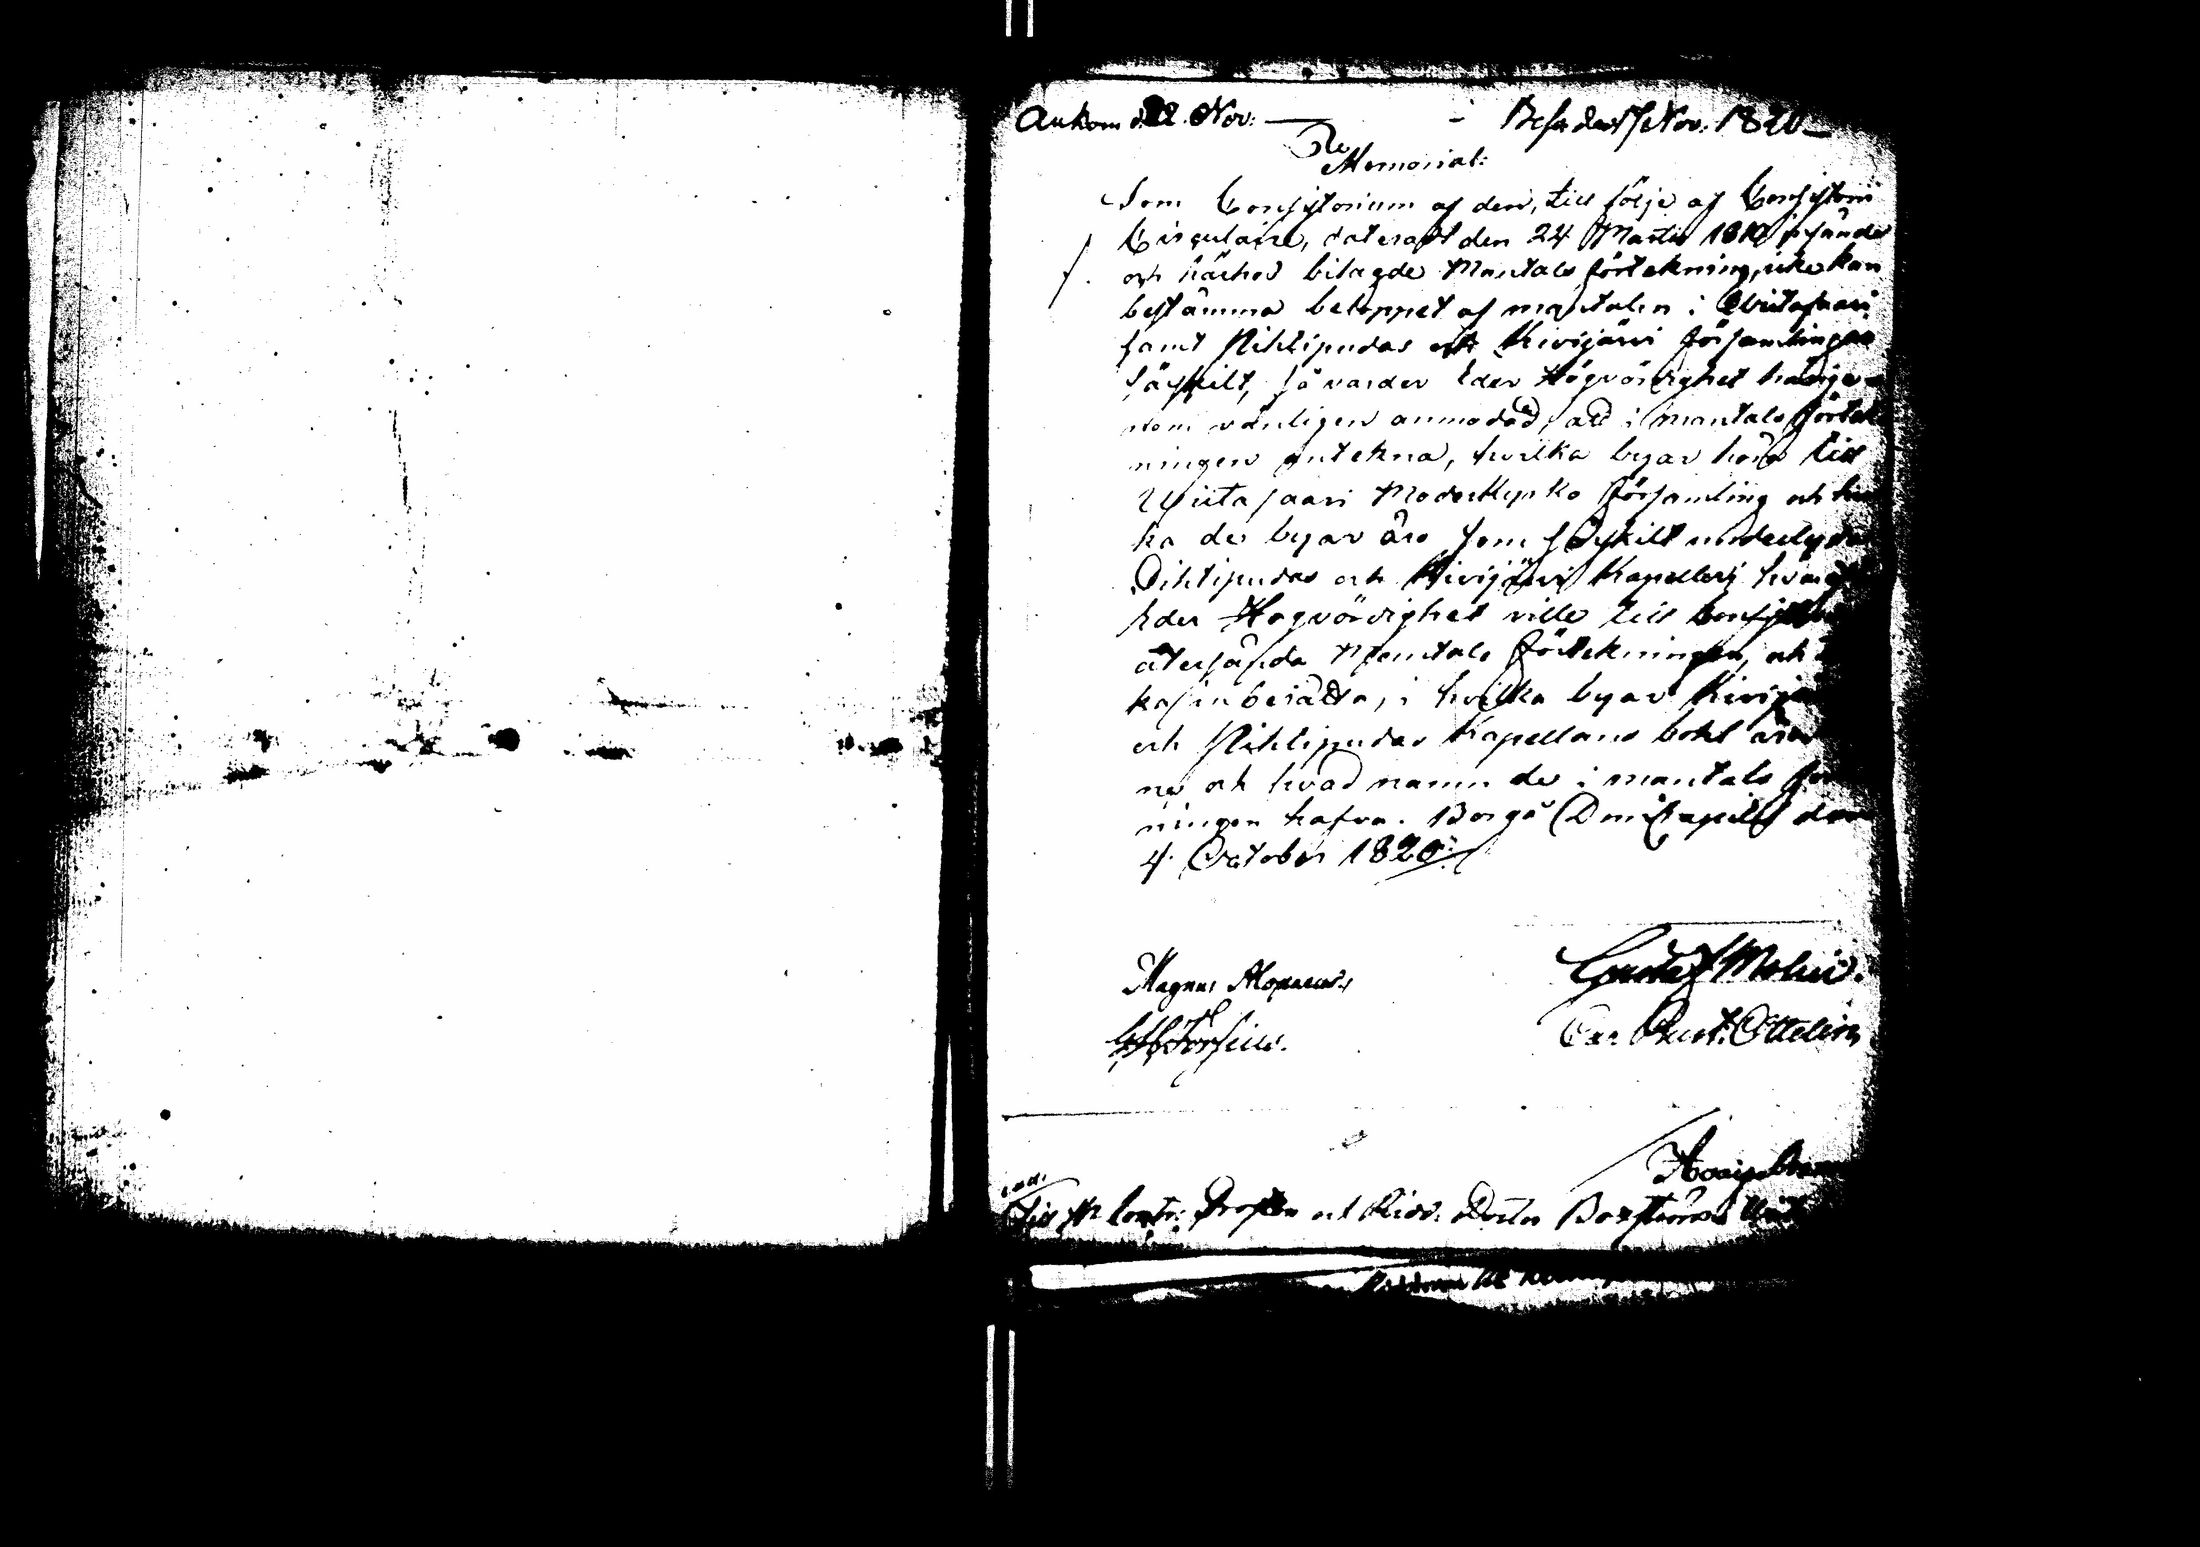 Ankom d. 22. Nov. — Besv. den 17 Nov. 1820
Memorial.
Som Consistorium af den, till följe af Consistorii
Circulaire, dateradt den 24 Martii 1819 insände
och härhos bilagde Mantals förtekning, icke kan
bestämma beloppet af mantalen i Witasaari
samt Pihtipudas och Kivijärvi församlingar
särskilt, så varder Eder Högvördighet härige-
nom vänligen anmodad, att i mantals förtek
ningen antekna, hvilka byar höra till
Wiitasaari Moderkyrko församling och
ka de byar äro som särskilt underlyda
Pihtipudas och Kivijärvi Kapeller;
Eder Högvördighet ville till
återsända Mantals förtekningen, och
inberätta, i hvilka byar
och Pihtipudas Kapellans bohl
ne och hvad namn de i mantals
ningen hafva. Borgå Domcapitel den
4. October 1820.
Magnus Alopaeus. Gustaf Molin.
Carl Gust. Ottelin
Till Contr. Prosten och Ridd. Doctor